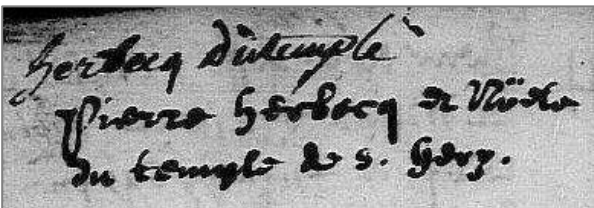 herbecq dùtemplè
pierre herbecq de
du temple de s. hery.